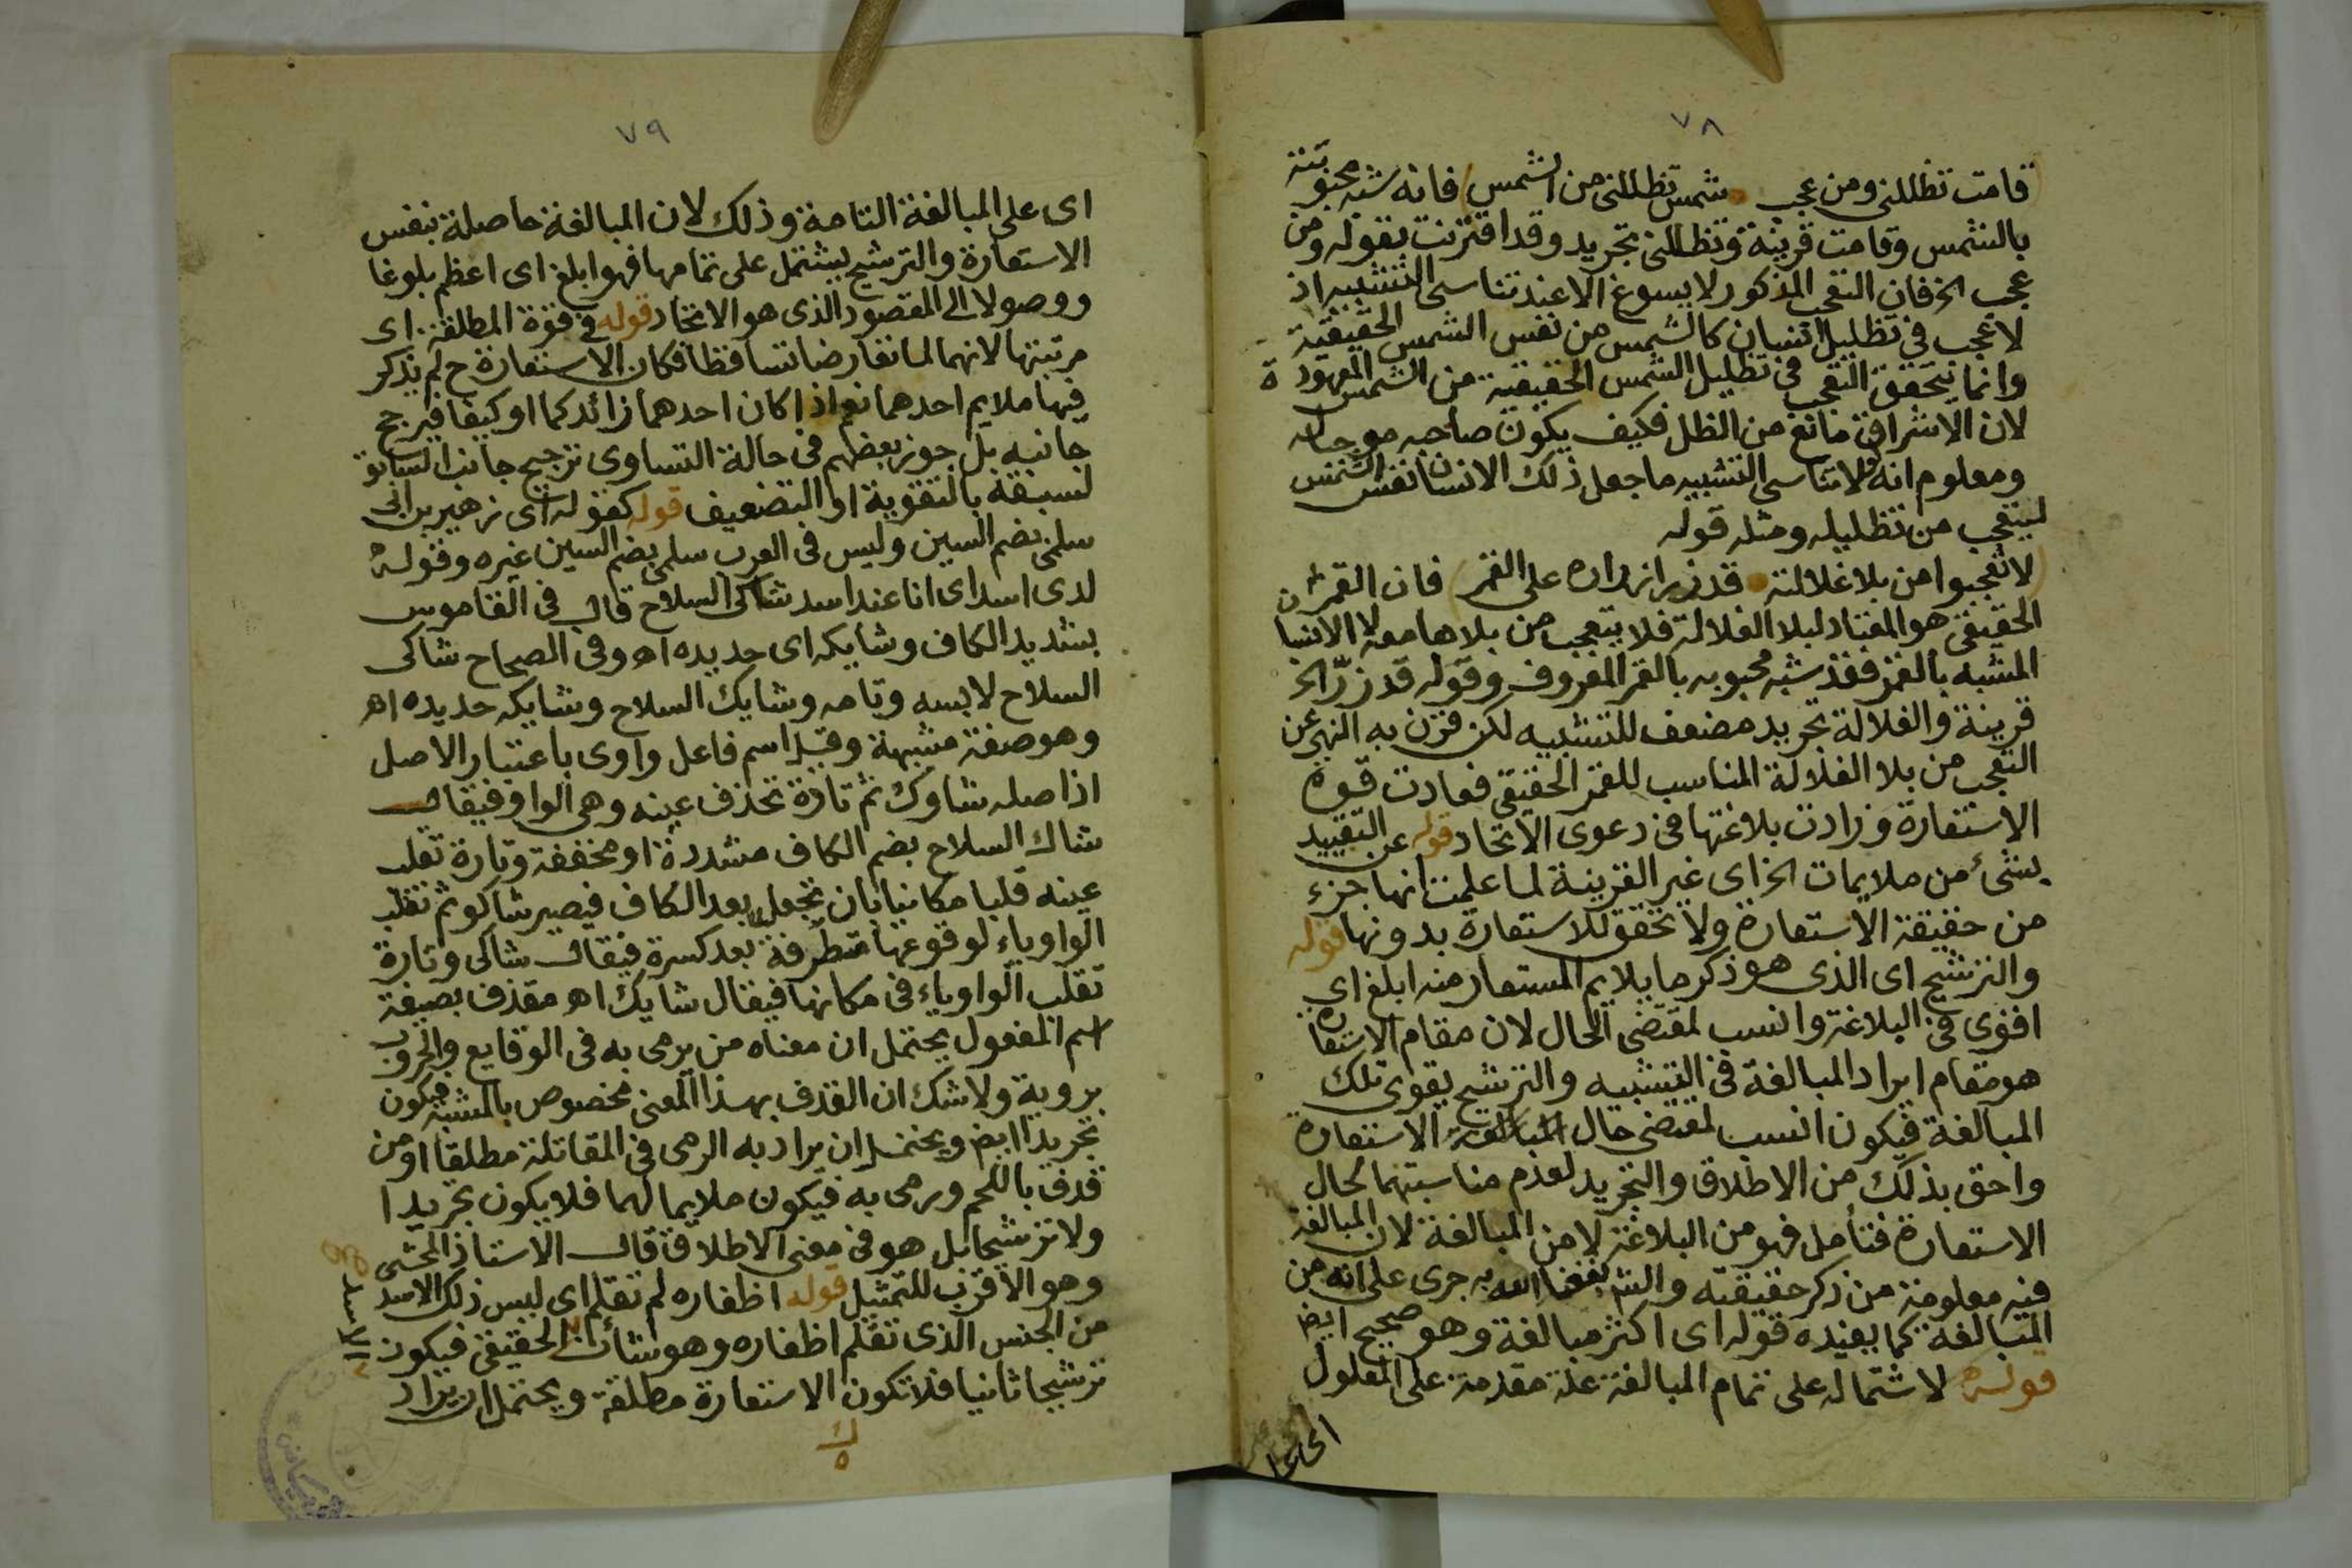 ٧٨
قامت تظللني ومن عجب شمس تظللني من الشمس فانه شبه محبوبته
بالشمس وقامت قرينة وتظللني تجريد وقد اقترنت بقوله ومن
عجب الخ فان التعجب المذكور لا يسوغ الا عند تناسي التشبيه اذ
لا عجب في تظليل انسان كالشمس من نفس الشمس الحقيقية
وانما يتحقق التعجب في تظليل الشمس الحقيقية من الشمس المعهودة
لان الاشراق مانع من الظل فكيف يكون صاحبه موجبا له
ومعلوم انه لولا تناسي التشبيه ما جعل ذلك الانسان نفس الشمس
ليتعجب من تظليله ومثله قوله
لا تعجبوا من بلا غلالته قد زر ازراره على القمر فان القمر
الحقيقي هو المعتاد لبلا الغلالة فلا يتعجب من بلاها معه لا الانسان
المشبه بالقمر فقد شبه محبوبه بالقمر المعروف وقوله قد زرّ الخ
قرينة والغلالة تجريد مضعف للتشبيه لكن قرن به النهي عن
التعجب من بلا الغلالة المناسب للقمر الحقيقي فعادت قوة
الاستعارة وزادت بلاغتها في دعوى الاتحاد قوله عن التقييد
بشيء من ملايمات الخ اي غير القرينة لما علمت انها جزء
من حقيقة الاستعارة ولا تحقق للاستعارة بدونها قوله
والترشيح اى الذى هو ذكر ما يلايم المستعار منه ابلغ اي
اقوى في البلاغة وانسب لمقتضى الحال لان مقام الاستعارة
هو مقام ايراد المبالغة في التشبيه والترشيح يقوى تلك
المبالغة فيكون انسب لمقتضى حال المبالغة الاستعارة
واحق بذلك من الاطلاق والتجريد لعدم مناسبتهما لحال
الاستعارة فتأمل فهو من البلاغة لا من المبالغة لان المبالغة
فيه معلومة من ذكر حقيقته والشم نفعنا الله به جرى على انه من
المبالغة كما يفيده قوله اى اكثر مبالغة وهو صحيح ايضا
قوله لاشتماله على تمام المبالغة علة مقدمة على المعلول
اى على
٧٩
اى على المبالغة التامة وذلك لان المبالغة حاصلة بنفس
الاستعارة والترشيح يشتمل على تمامها فهو ابلغ اى اعظم بلوغا
ووصولا الى المقصود الذى هو الاتحاد قوله في قوة المطلقة اى
مرتبتها لانهما لما تعارضا تساقطا فكان الاستعارة ح لم يذكر
فيها ملايم احدهما نعم اذا كان احدهما زائد كما او كيفا فيرجح
جانبه بل جوز بعضهم في حالة التساوى ترجيح جانب السابق
لسبقه بالتقوية او التضعيف قوله كقوله اى زهير بن ابى
سلمى بضم السين وليس في العرب سلمى بضم السين غيره وقوله
لدى اسد اى انا عند اسد شاكى السلاح قال في القاموس
بتشديد الكاف وشايكه اى حديده اه وفى الصحاح شاكى
السلاح لابسه وتامه وشايك السلاح وشايكه حديده اه
وهو صفة مشبهة وقيل اسم فاعل واوى باعتبار الاصل
اذ اصله شاوك ثم تارة تحذف عينه وهى الواو فيقال
شاك السلاح بضم الكاف مشددة او مخففة وتارة تقلب
عينه قلبا مكانيا بان تجعل بعد الكاف فيصير شاكو ثم تقلب
الواو ياء لوقوعها متطرفة بعد كسرة فيقال شاكى وتارة
تقلب الواو ياء في مكانها فيقال شايك اه مقذف بصيغة
اسم المفعول يحتمل ان معناه من يرمى به في الوقايع والحروب
بروية ولا شك ان القذف بهذا المعنى مخصوص بالمشبه فيكون
تجريدا ايض ويحتمل ان يراد به الرمى في المقاتلة مطلقا او من
قذف باللحم ورمى به فيكون ملايما لهما فلا يكون تجريدا
ولا ترشيحا بل هو في معنى الاطلاق قال الاستاذ المحشى
وهو الاقرب للتمثيل قوله اظفاره لم تقلم اى ليس ذلك الاسد
من الجنس الذى تقلم اظفاره وهو شأن الحقيقي فيكون
ترشيحا ثانيا فلا تكون الاستعارة مطلقة ويحتمل ان يراد
الاسد